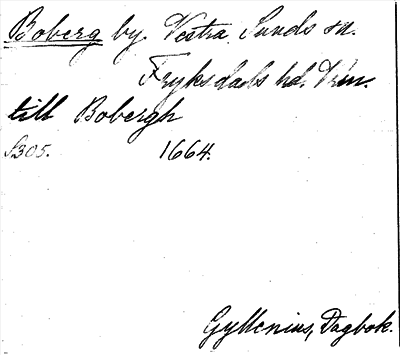 Boberg by. Vestra Sunds sn.
Fryksdals hd. Vrm.
till Bobergh
S305. 1664.
Gyllenius, Dagbok.